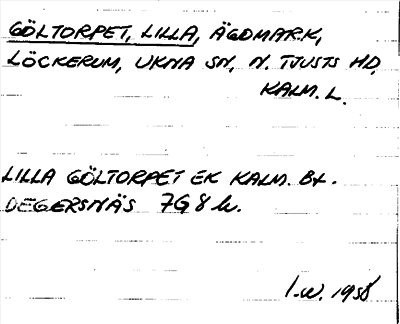 GÖLTORPET, LILLA, ÄGOMARK,
LÖCKERUM, UKNA SN, N. TJUSTS HD,
KALM. L.
LILLA GÖLTORPET EK KALM. BL.
DEGERSNÄS 7G 8 h.
I.W. 1958